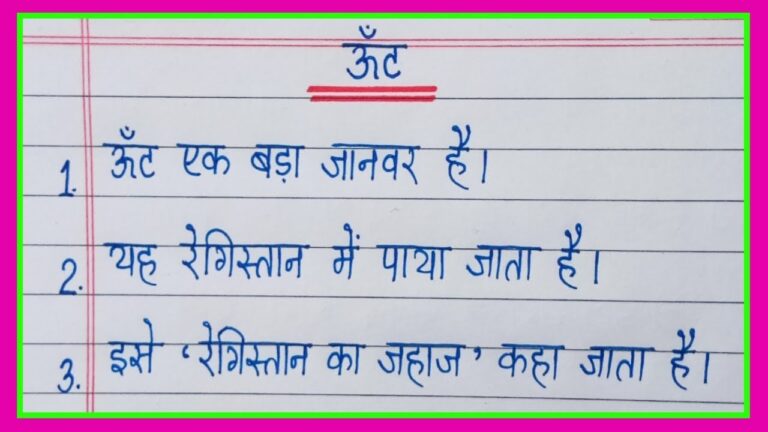 ऊँट
1. ऊँट एक बड़ा जानवर है।
2. यह रेगिस्तान में पाया जाता है।
3. इसे ‘रेगिस्तान का जहाज’ कहा जाता है।